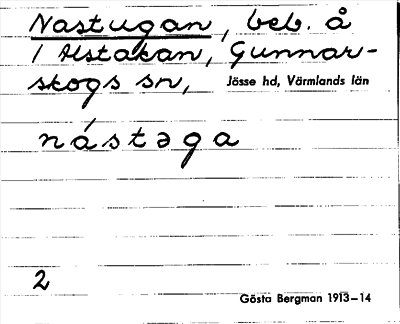 Nastugan, beb. å
1 Alstakan, Gunnar-
skogs sn, Jösse hd, Värmlands län
nástəga
2
Gösta Bergman 1913–14